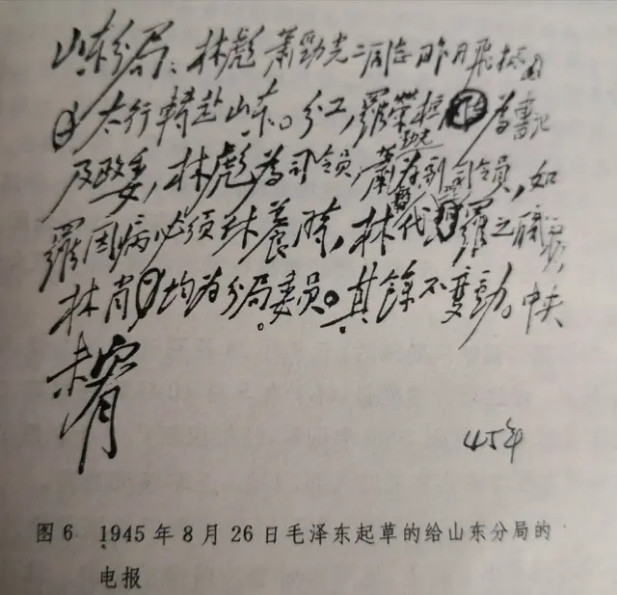 山东分局：林彪萧劲光二同志昨日飞抵
太行转赴山东。分工，罗荣桓为书记
及政委，林彪为司令员，萧为副司令员，如
罗因病必须休养时，林代罗之职务，
林肖均为分局委员。其余不变动。中央
未宥
45年
图6 1945年8月26日毛泽东起草的给山东分局的
电报